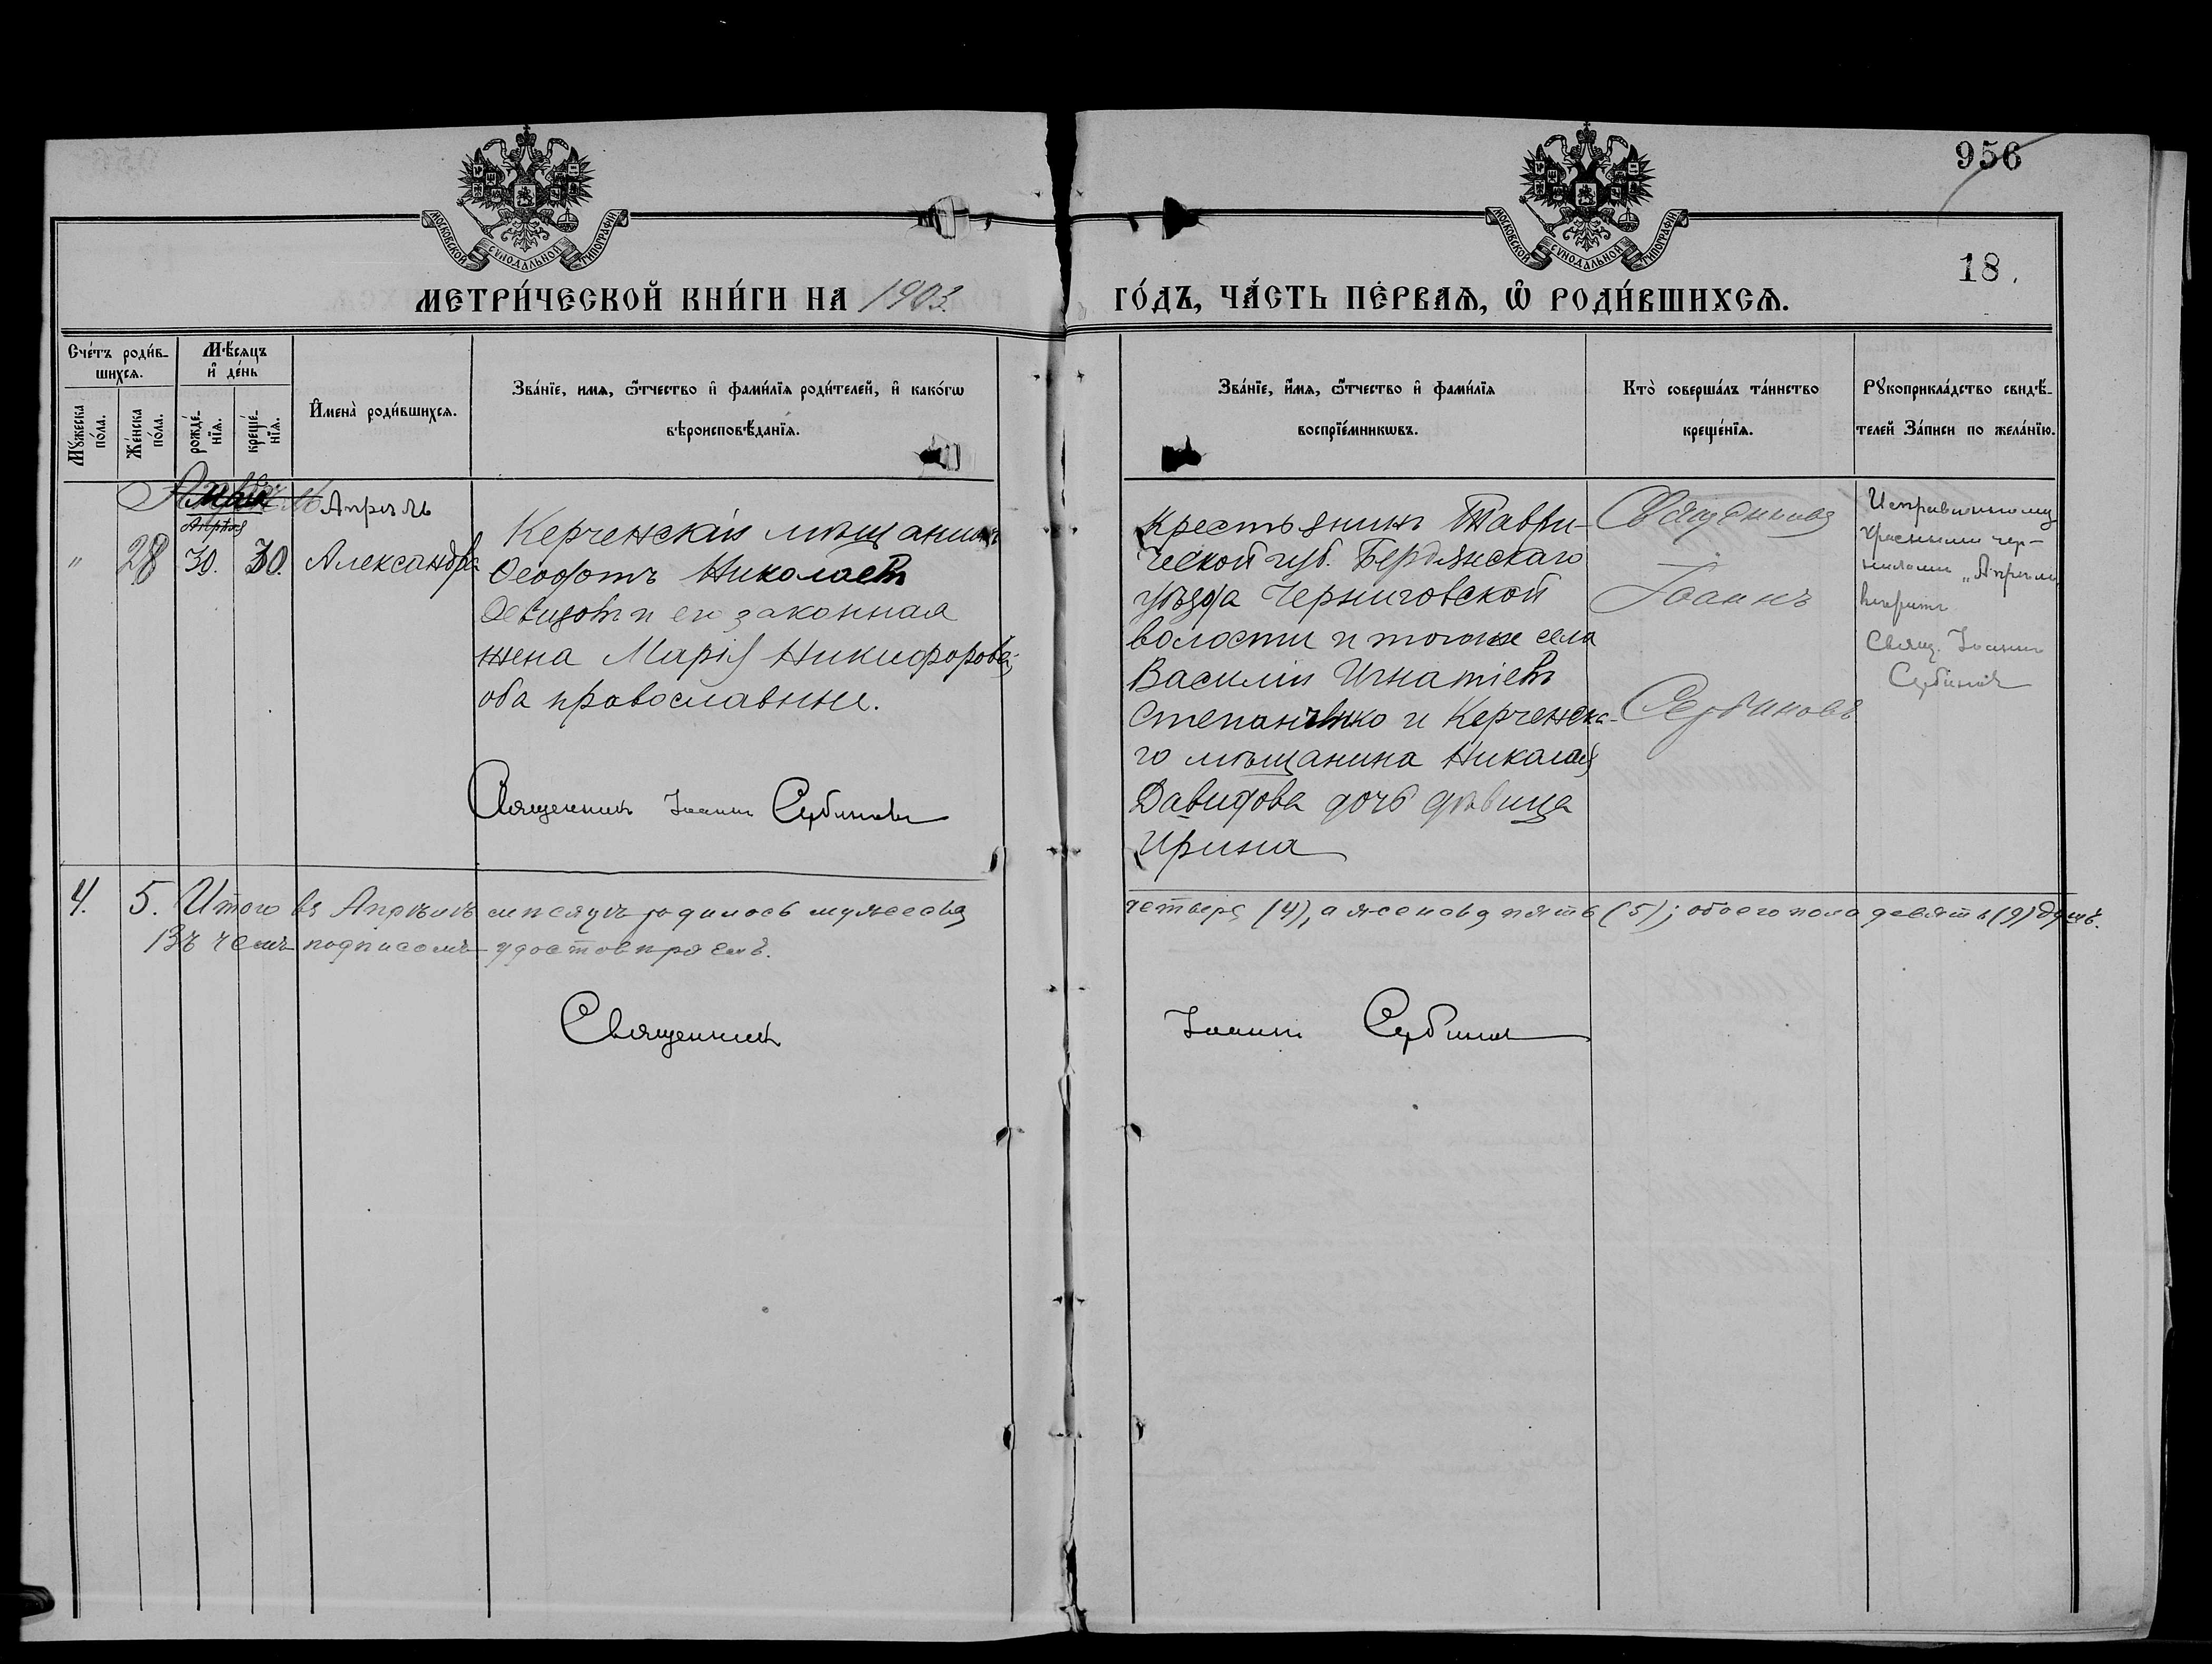 956
МОСКОВСКОЙ СѴНОДАЛЬНОЙ ТИПОГРАФІИ
МОСКОВСКОЙ СѴНОДАЛЬНОЙ ТИПОГРАФІИ
18.
МЕТРИ́ЧЕСКОЙ КНИ́ГИ НА 1903
ГО́ДЪ, ЧА́СТЬ ПЕ́РВАЯ, Ѡ РОДИ́ВШИХСЯ.
Сче́тъ роди́в-
шихся.
Мꙋжеска по́ла.
Же́нска по́ла.
Мѣ́сяцъ
и де́нь
рожде́-
нїя.
креще́-
нїя.
Имена̀ роди́вшихся.
Зва́нїе, имя, ѻтчество и фами́лїя роди́телей, и како́гѡ
вѣроисповѣ́данїя.
Зва́нїе, имя, ѻтчество и фами́лїя
воспрїе́мникѡвъ.
Кто̀ соверша́лъ та́инство
креще́нїя.
Рꙋкоприкла́дство свидѣ́-
телей за́писи по жела́нїю.
Апрѣль
Апрѣля
" 28 30. 30. Александра
Керченскій мѣщанинъ
Николаевъ
и его законная
жена Марія Никифорова;
оба православные.
Священникъ Іоаннъ Сербиновъ
Крестьянинъ Таври-
ческой губ. Бердянскаго
уѣзда Черниговской
волости и того же села
Василій Игнатіевъ
Степаненко и Керченска-
го мѣщанина Николая
Давидова дочь дѣвица
Ирина
Священникъ
Іоаннъ
Сербиновъ
Исправленному
красными чер-
нилами „Апрѣль
вѣрить
Свящ. Іоаннъ
Сербиновъ
4. 5. Итого въ Апрѣлѣ мѣсяцѣ родилось мужеска четыре (4), а женска пять (5); обоего пола девять (9) душъ.
Въ чемъ подписомъ удостовѣряемъ.
Священникъ Іоаннъ Сербиновъ